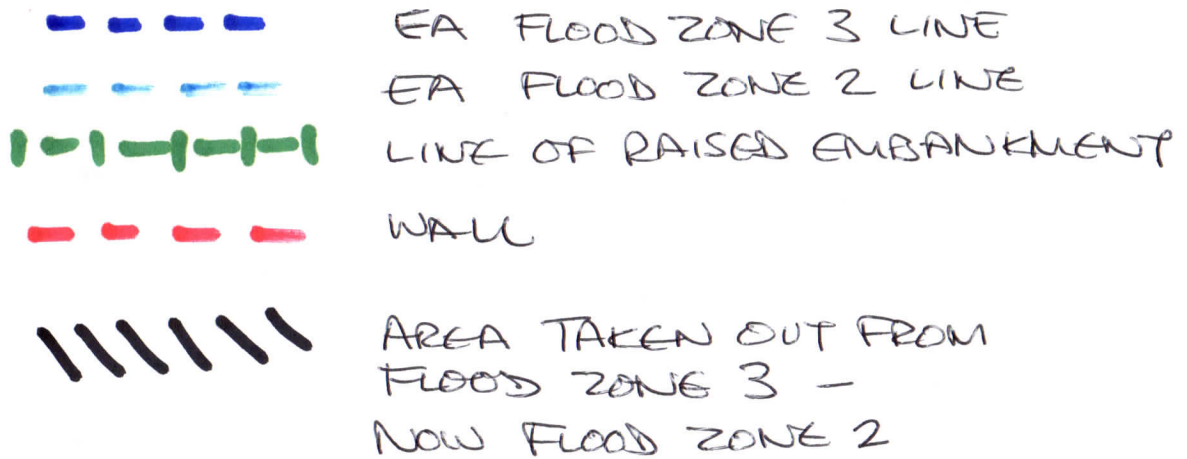 EA FLOOD ZONE 3 LINE
EA FLOOD ZONE 2 LINE
LINE OF RAISED EMBANKMENT
WALL
AREA TAKEN OUT FROM
FLOOD ZONE 3 –
NOW FLOOD ZONE 2